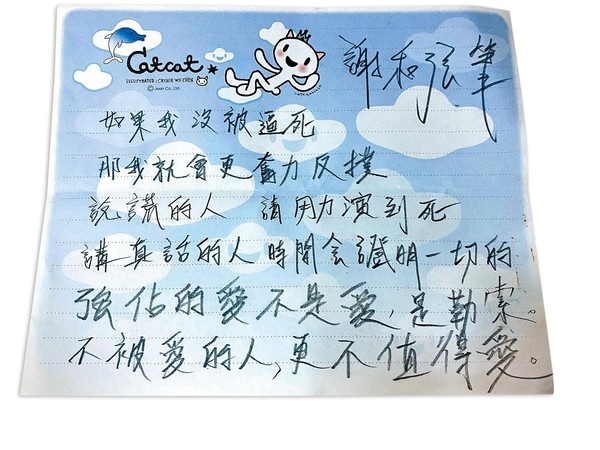 Catcat
ILLUSTRATED: CATHIE WU CHEN
© Jean Co., Ltd.
謝和弦筆
如果我沒被逼死
那我就會更奮力反撲
說謊的人 請用力演到死
講真話的人 時間会證明一切的
強佔的愛不是愛,是勒索。
不被愛的人,更不值得愛。